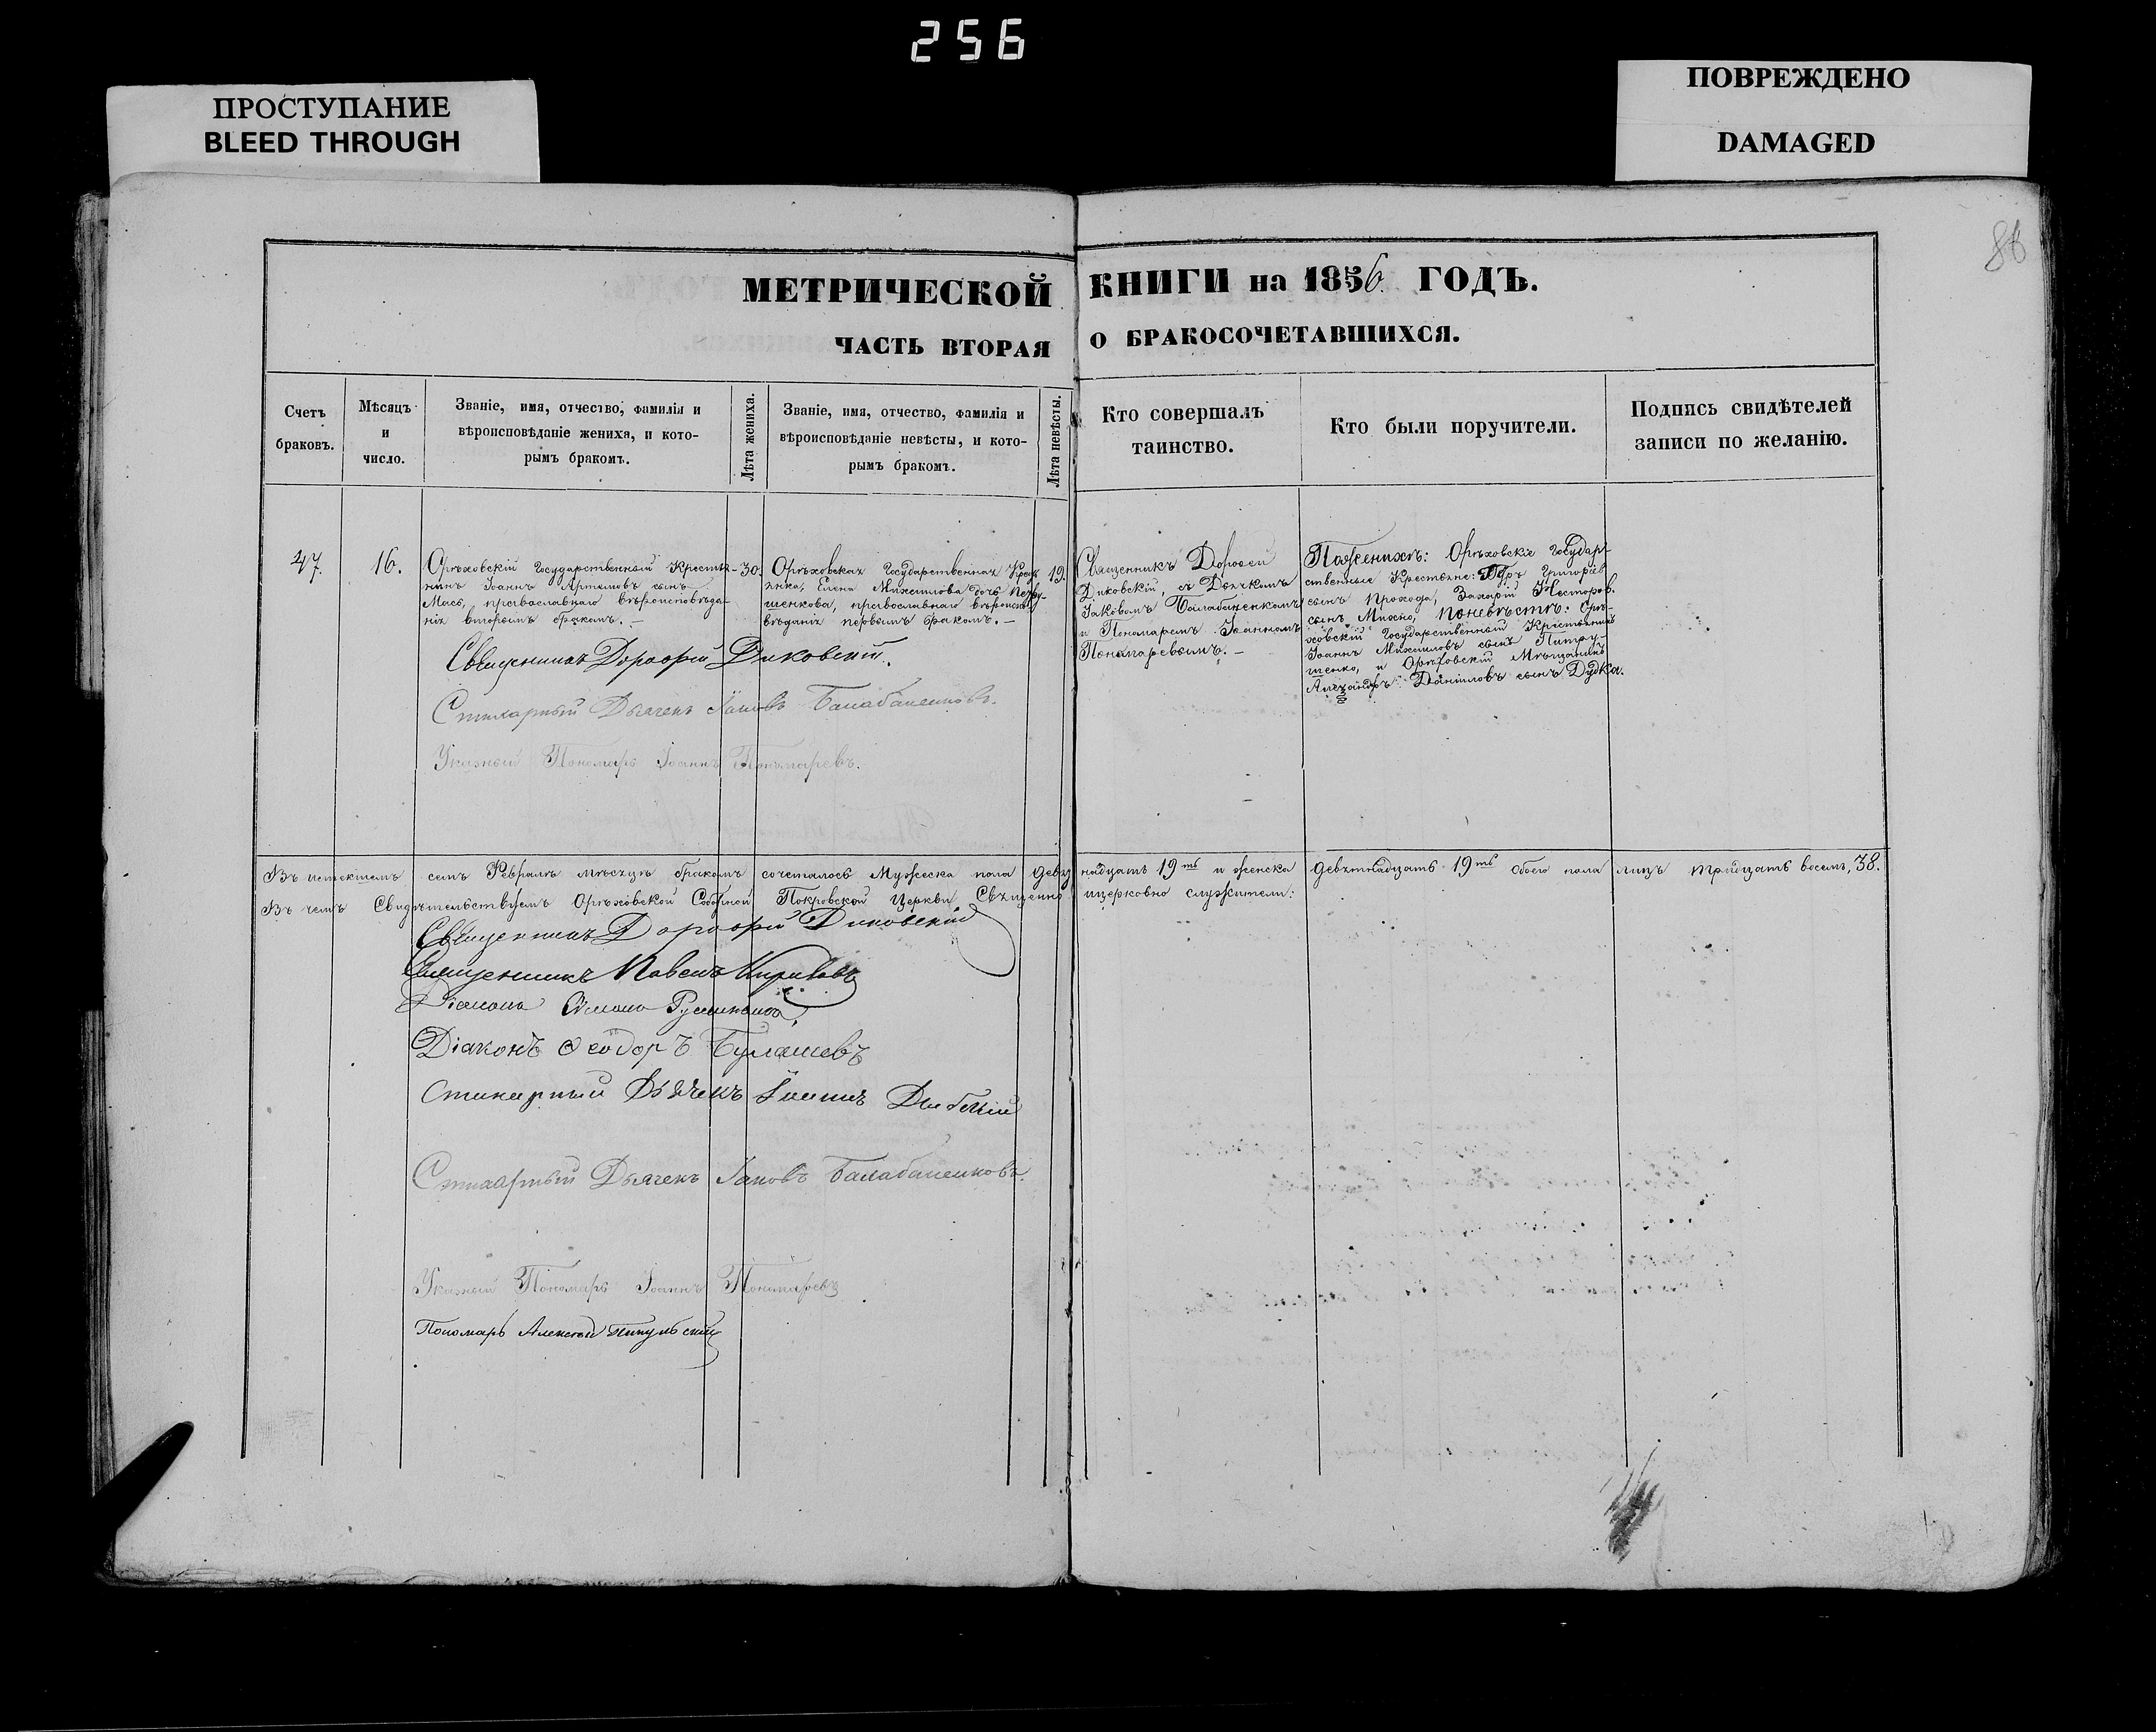 256
ПРОСТУПАНИЕ
BLEED THROUGH
ПОВРЕЖДЕНО
DAMAGED
86
МЕТРИЧЕСКОЙ КНИГИ на 1856. ГОДЪ.
ЧАСТЬ ВТОРАЯ О БРАКОСОЧЕТАВШИХСЯ.
Счетъ
браковъ.
Мѣсяцъ
и
число.
Званіе, имя, отчество, фамилія и
вѣроисповѣданіе жениха, и кото-
рымъ бракомъ.
Лѣта жениха.
Званіе, имя, отчество, фамилія и
вѣроисповѣданіе невѣсты, и кото-
рымъ бракомъ.
Лѣта невѣсты.
Кто совершалъ
таинство.
Кто были поручители.
Подпись свидѣтелей
записи по желанію.
47.
16.
Орѣховскій Государственный Крестья-
нинъ Іоаннъ Артемовъ сынъ
православнаго вѣроисповѣда-
нія вторымъ бракомъ. –
30.
Орѣховская Государственная Кресть
янка, Елена Михаилова дочь Петру-
шенкова, православнаго вѣроиспо-
вѣданія первымъ бракомъ. –
19.
Священникъ Дорофей
Диковскій, съ Дьячкомъ
Іаковомъ Балабаненкомъ
и Пономаремъ Іоанномъ
Пономаревымъ. –
По женихѣ: Орѣховскіе Государ-
ственные Крестьяне: Григоріев
сынъ Прохода, Захарій Несторов.
сынъ Михно, По невѣстѣ: Орѣ-
ховскій Государственный Крестьянинъ
Іоаннъ Михаиловъ сынъ Питру-
шенко, и Орѣховскій Мѣщанинъ
Александръ Даніиловъ сынъ Дудка.
Священникъ Дорофей Диковскій.
Стихарный Дьячекъ Іаковъ Балабаненковъ.
Указный Пономарь Іоаннъ Пономаревъ.
Въ истекшемъ семъ Февралѣ мѣсяцѣ бракомъ сочеталось Мужеска пола девят надцать 19ть и женска девятнадцать 19ть обоего пола лицъ тридцать восемь, 38.
Въ чемъ Свидѣтельствуемъ Орѣховской Соборной Покровской Церкви Священно ицерковно служители:
Священникъ Дорофей Диковскій
Священникъ Павелъ
Діаконъ Симонъ
Діаконъ Ѳеодоръ Булашевъ
Стихарный Дьячекъ
Стихарный Дьячекъ Іаковъ Балабаненковъ.
Указный Пономарь Іоаннъ Пономаревъ
Пономарь Алексѣй Пикульскій